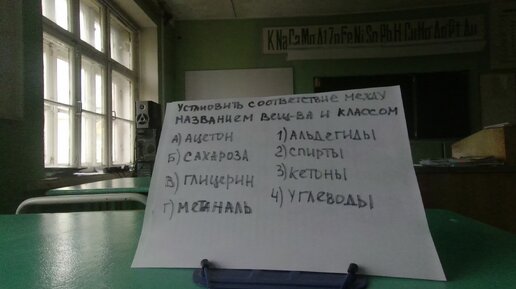 K Na Ca Mg Al Zn Fe Ni Sn Pb H Cu Hg Ag Pt Au
УСТАНОВИТЬ СООТВЕТСТВИЕ МЕЖДУ
НАЗВАНИЕМ ВЕЩ-ВА И КЛАССОМ
А) АЦЕТОН 1) АЛЬДЕГИДЫ
Б) САХАРОЗА 2) СПИРТЫ
В) ГЛИЦЕРИН 3) КЕТОНЫ
Г) МЕТАНАЛЬ 4) УГЛЕВОДЫ